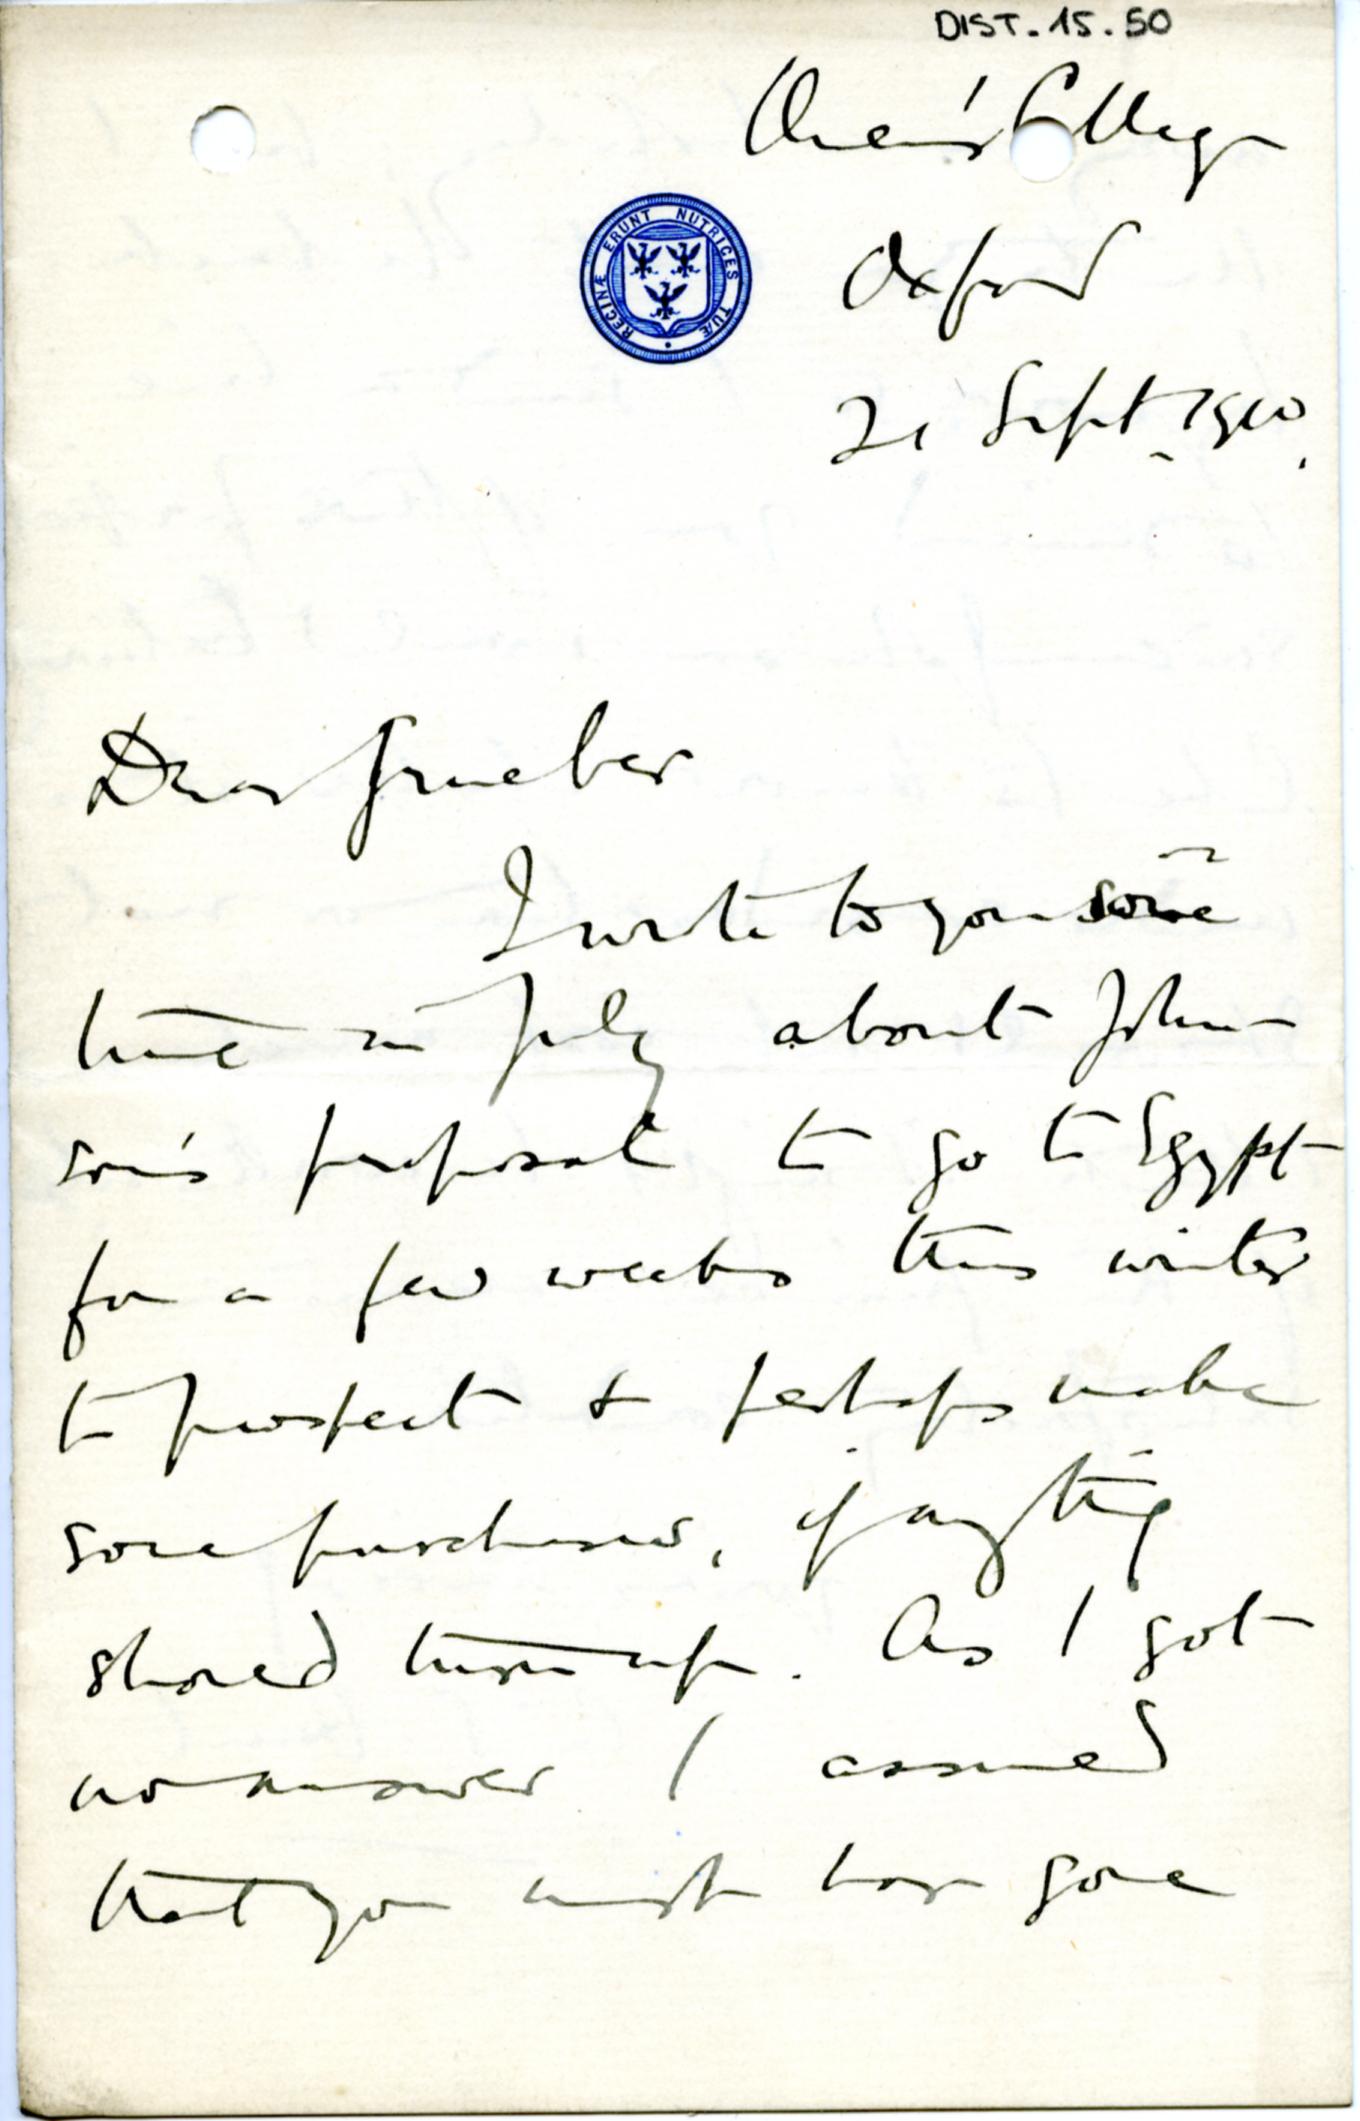 DIST. 15. 50
Queen's College
Oxford
21 Sept. 1910.
REGINÆ ERUNT NUTRICES TUÆ
Dear Grueber
I wrote to you some
time in July about John-
son's proposal to go to Egypt
for a few weeks this winter
to prospect & perhaps make
some purchases, if anything
should turn up. As I got
no answer I assumed
that you must have gone